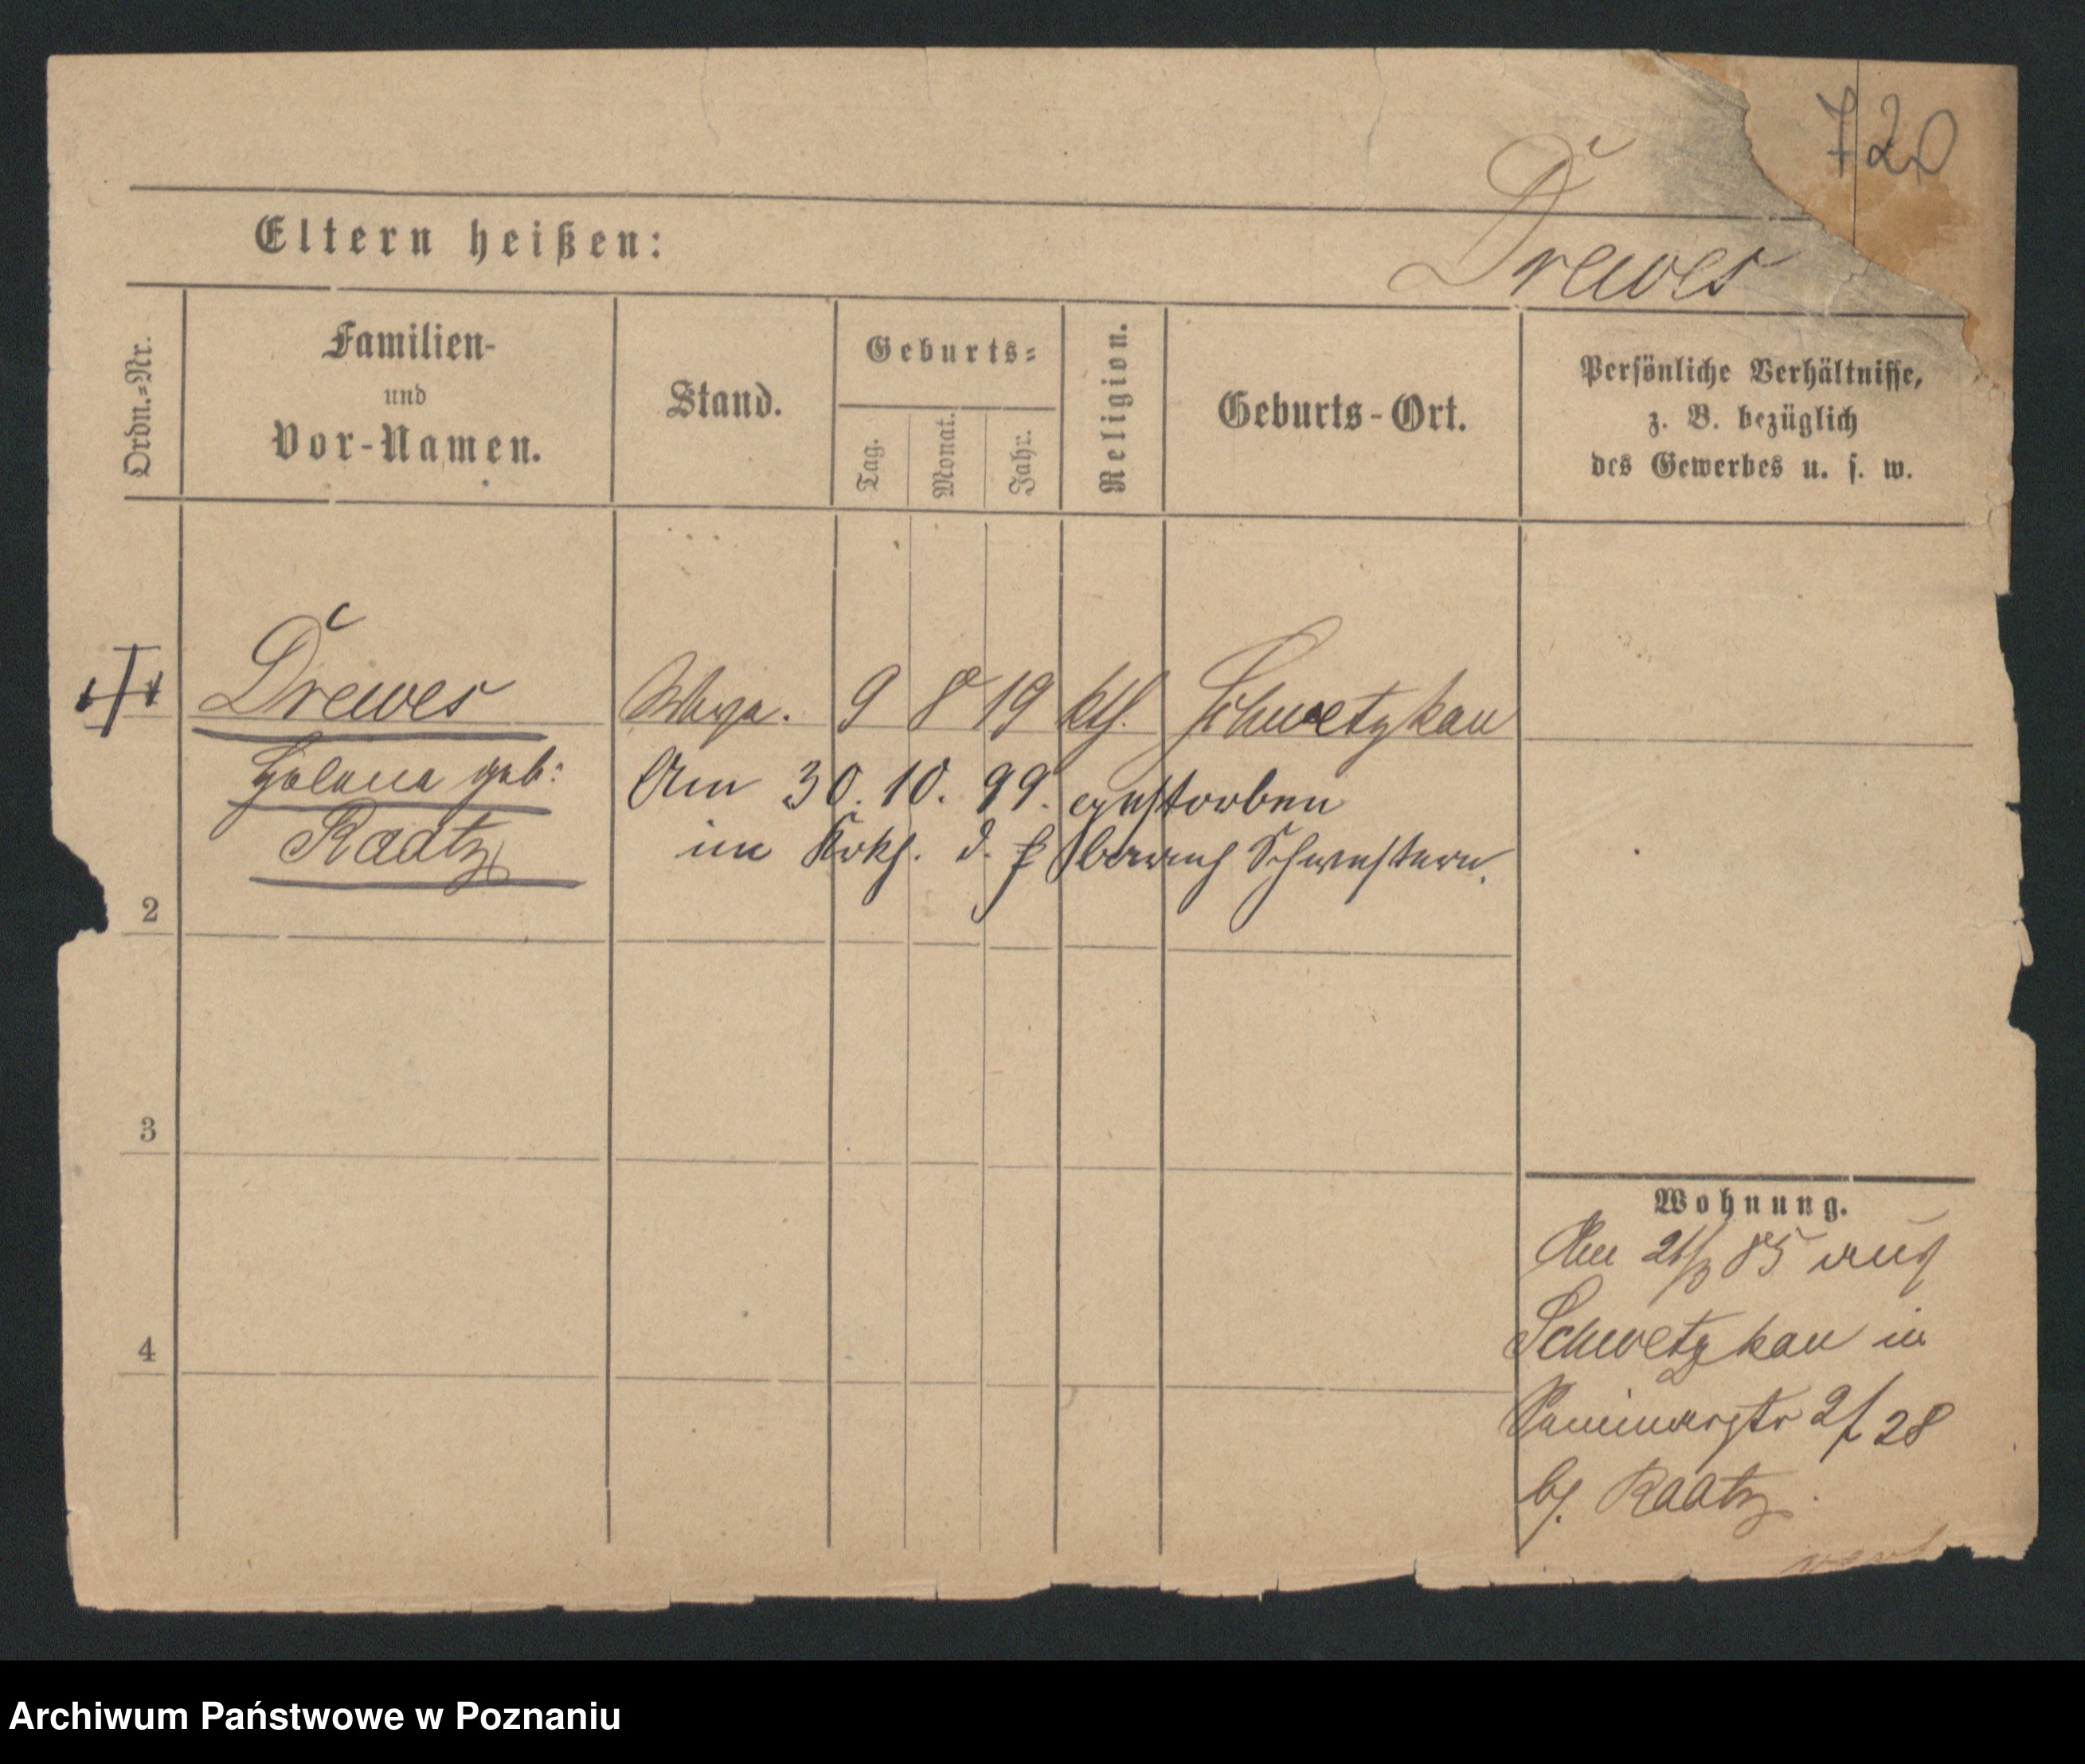 720
Drewes
Eltern heißen:
Ordn.=Nr.
Familien-
und
Vor-Namen.
Stand.
Geburts=
Tag.
Monat.
Jahr.
Religion.
Geburts-Ort.
Persönliche Verhältnisse,
z. B. bezüglich
des Gewerbes u. s. w.
Drewes 9 8 19 kth. Schwetzkau
Helena geb:
Raatz
Am 30. 10. 99. gestorben
im Krkh. d. Schwestern.
2
3
4
Wohnung.
Am 85 aus
Schwetzkau in
Seminarstr 2/28
bj. Raatz.
Archiwum Państwowe w Poznaniu